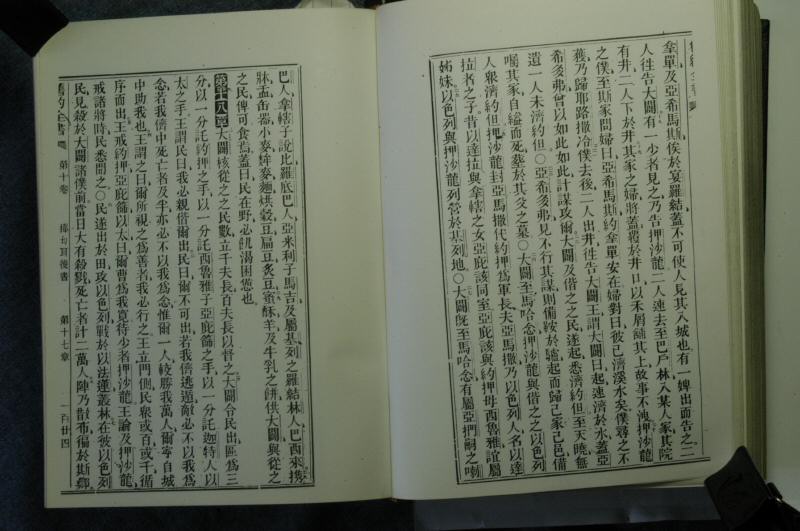 拿單及亞希馬斯俟於宴羅結蓋不可使人見其入城也有一婢出而告之二
人徃告大闢有一少者見之乃告押沙龍二人速去至巴戶林入某人家其院
有井二人下於井其家之婦將蓋覆於井口以禾屑舖其上故事不洩押沙龍
之僕至斯家問婦曰亞希馬斯約拿單安在婦對曰彼已濟溪水矣僕尋之不
獲乃歸耶路撒冷僕去後二人出井徃告大闢王謂大闢曰起速濟於水蓋亞
希多弗曾以如此如此計謀攻爾大闢及偕之之民遂起悉濟約但至天曉無
遺一人未濟約但〇亞希多弗見不行其謀則備鞍於驢起而歸己家己邑備
囑其家自縊而死葬於其父之墓〇大闢至馬哈念押沙龍與偕之之以色列
人衆濟約但押沙龍封亞馬撒代約押爲軍長夫亞馬撒乃以色列人名以達
拉者之子昔以達拉與拿轄之女亞庇該同室亞庇該與約押母西魯雅誼屬
姊妹以色列與押沙龍列營於基列地〇大闢旣至馬哈念有屬亞捫嗣之喇
巴人拿轄子說比羅底巴人亞米利子馬吉及屬基列之羅結林人巴西來携
牀盂缶器小麥麰麥麵烘穀豆扁豆炙豆蜜酥羊及牛乳之餠供大闢與從之
之民俾可食焉蓋曰民在野必飢渴困憊也
第十八章 大闢核從之之民數立千夫長百夫長以督之大闢令民出區爲三
分以一分託約押之手以一分託西魯雅子亞庇篩之手以一分託迦特人以
太之手王謂民曰我必親偕爾出民曰爾不可出若我儕逃遁敵必不以我爲
念若我儕中死亡者及半亦必不以我爲念惟爾一人較勝我萬人爾寧自城
中助我也王謂之曰爾所視之爲善者我必行之王立門側民衆或百或千循
序而出王戒約押亞庇篩以太曰爾曹爲我寬待少者押沙龍王諭及押沙龍
戒諸將時民悉聞之〇民遂出於田攻以色列戰於以法蓮叢林在彼以色列
民見殺於大闢諸僕前當日大有殺戮死亡者計二萬人陣乃散布徧於斯鄕
舊約全書 第十卷 撒母耳後書 第十七章 一百廿四